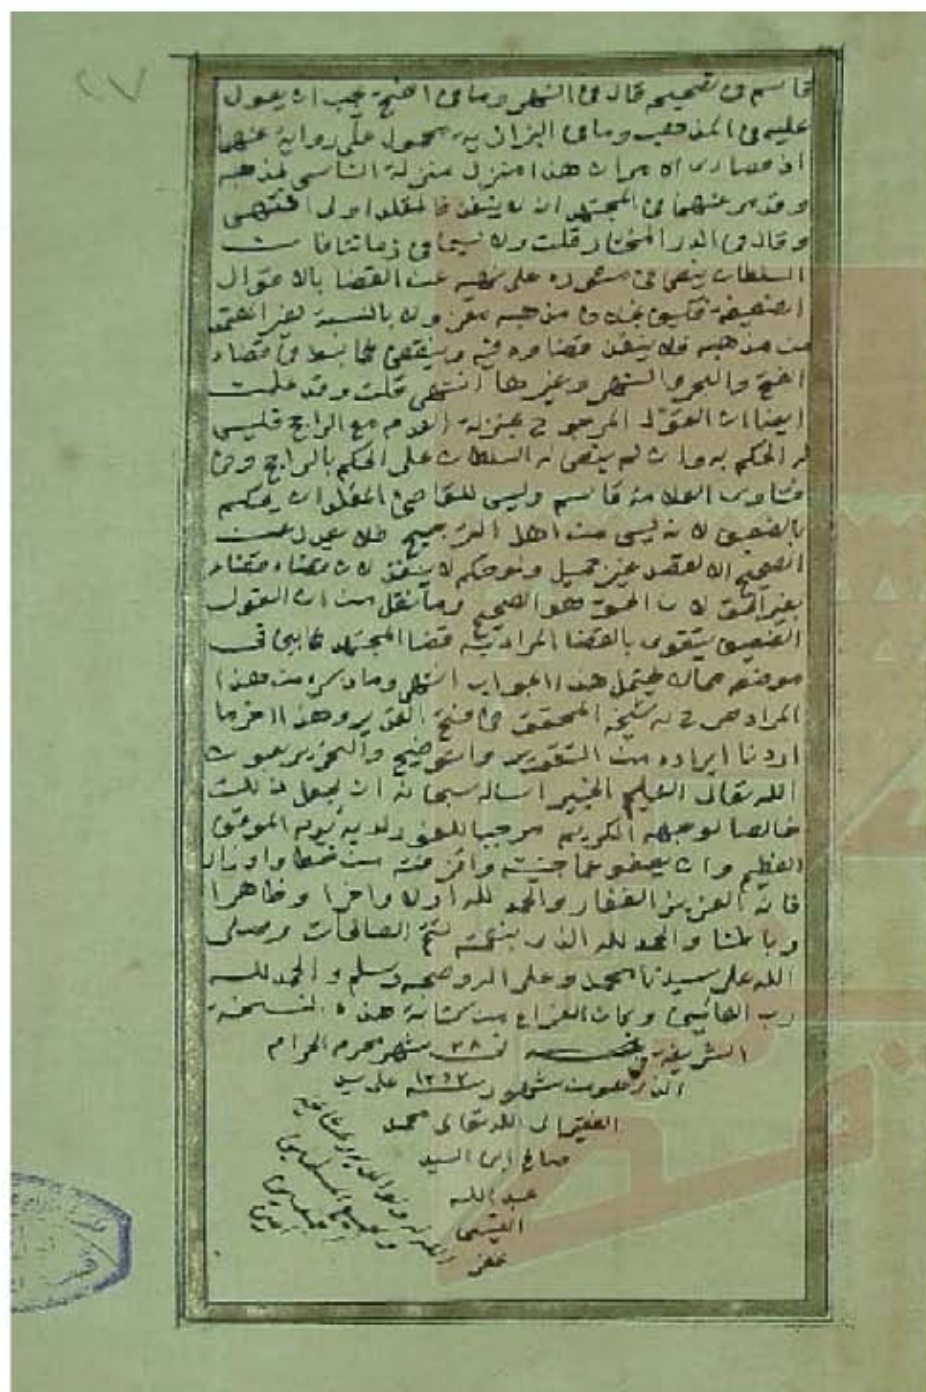 ٢٧
قاسم في تصحيحه قال في النهر وما في الفتح يجب ان يعول
عليه في المذهب وما في البزازية محمول على رواية عنهما
اذ قصارى الامر ان هذا منزل منزلة الناسي لمذهبه
وقد مر عنهما في المجتهد انه لا ينفذ فالمقلد اولى انتهى
وقال في الدر المختار قلت ولا سيما في زماننا فان
السلطان ينص في منشوره على نهيه عن القضا بالاقوال
الضعيفة فكيف بخلاف مذهبه معزولا بالنسبة لغير المعتمد
من مذهبه فلا ينفذ قضاوه فيه وينقض كما بسط في قضاء
الفتح والبحر والنهر وغيرها انتهى قلت وقد علمت
ايضا ان القول المرجوح بمنزلة العدم مع الراجح فليس
له الحكم به وان لم ينص له السلطان على الحكم بالراجح وفي
فتاوى العلامة قاسم وليس للقاضي المقلد ان يحكم
بالضعيف لانه ليس من اهل الترجيح فلا يعدل عن
الصحيح الا لقصد غير جميل ولو حكم لا ينفذ لان قضاه قضاء
بغير الحق لان الحق هو الصحيح وما نقل من ان القول
الضعيف يتقوى بالقضا المراد به قضا المجتهد كما بين في
موضعه مما لا يحتمل هذا الجواب انتهى وما ذكره من هذا
المراد صرح به شيخه المحقق في فتح القدير وهذا اخر ما
اردنا ايراده من التقرير والتوضيح والتحرير بعون
الله تعالى العليم الخبير اساله سبحانه ان يجعل ذلك
خالصا لوجهه الكريم موجبا للفوز لديه يوم الموقف
العظيم وان يعفو عما جنيته واقترفته من خطا واوزار
فانه العزيز الغفار والحمد لله اولا واخرا وظاهرا
وباطنا والحمد لله الذي بنعمته تتم الصالحات وصلى
الله على سيدنا محمد وعلى اله وصحبه وسلم والحمد لله
رب العالمين وكان الفراغ من كتابة هذه النسخة
الشريفة في ٢٨ شهر محرم الحرام
الذي من شهور سنة على يد
الفقير الى الله تعالى محمد
صالح ابن السيد
عبد الله
غفر
الله له ولوالديه
ولجميع المسلمين
اجمعين
امين